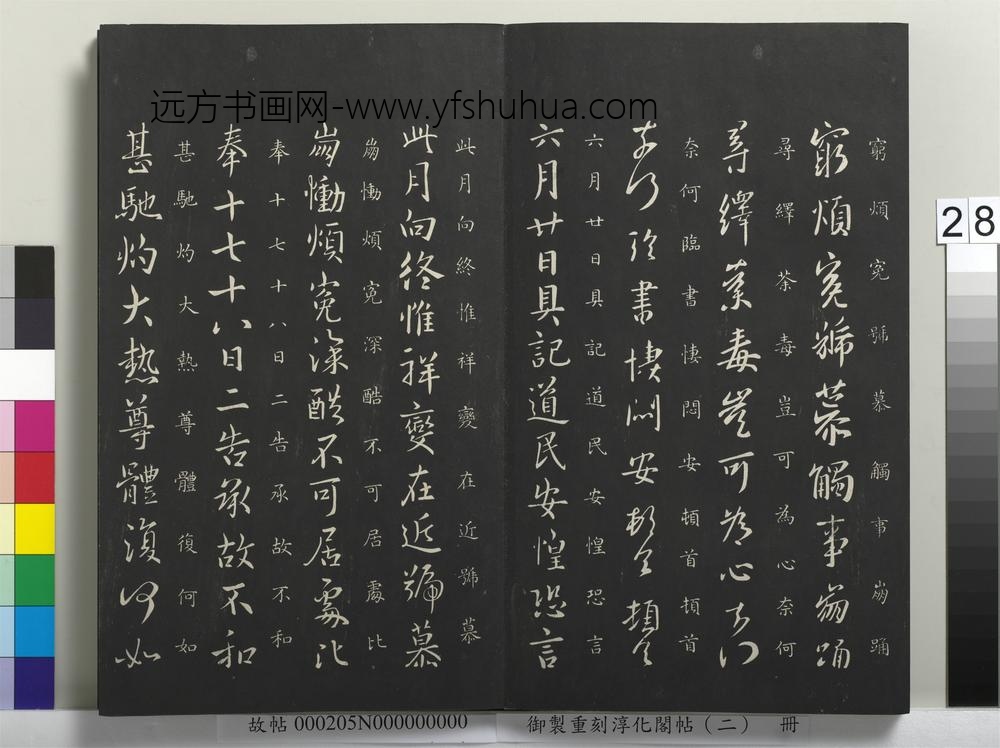 远方书画网-www.yfshuhua.com
窮煩冤號慕觸事崩踊
窮煩冤號慕觸事崩踊
尋繹荼毒豈可為心奈何
尋繹荼毒豈可為心奈何
奈何臨書悽悶安頓首頓首
奈何臨書悽悶安頓首頓首
六月廿日具記道民安惶恐言
六月廿日具記道民安惶恐言
此月向終惟祥變在近號慕
此月向終惟祥變在近號慕
崩慟煩冤深酷不可居處比
崩慟煩冤深酷不可居處比
奉十七十八日二告承故不和
奉十七十八日二告承故不和
甚馳灼大熱尊體復何如
甚馳灼大熱尊體復何如
28
故帖 000205N000000000
御製重刻淳化閣帖（二） 冊